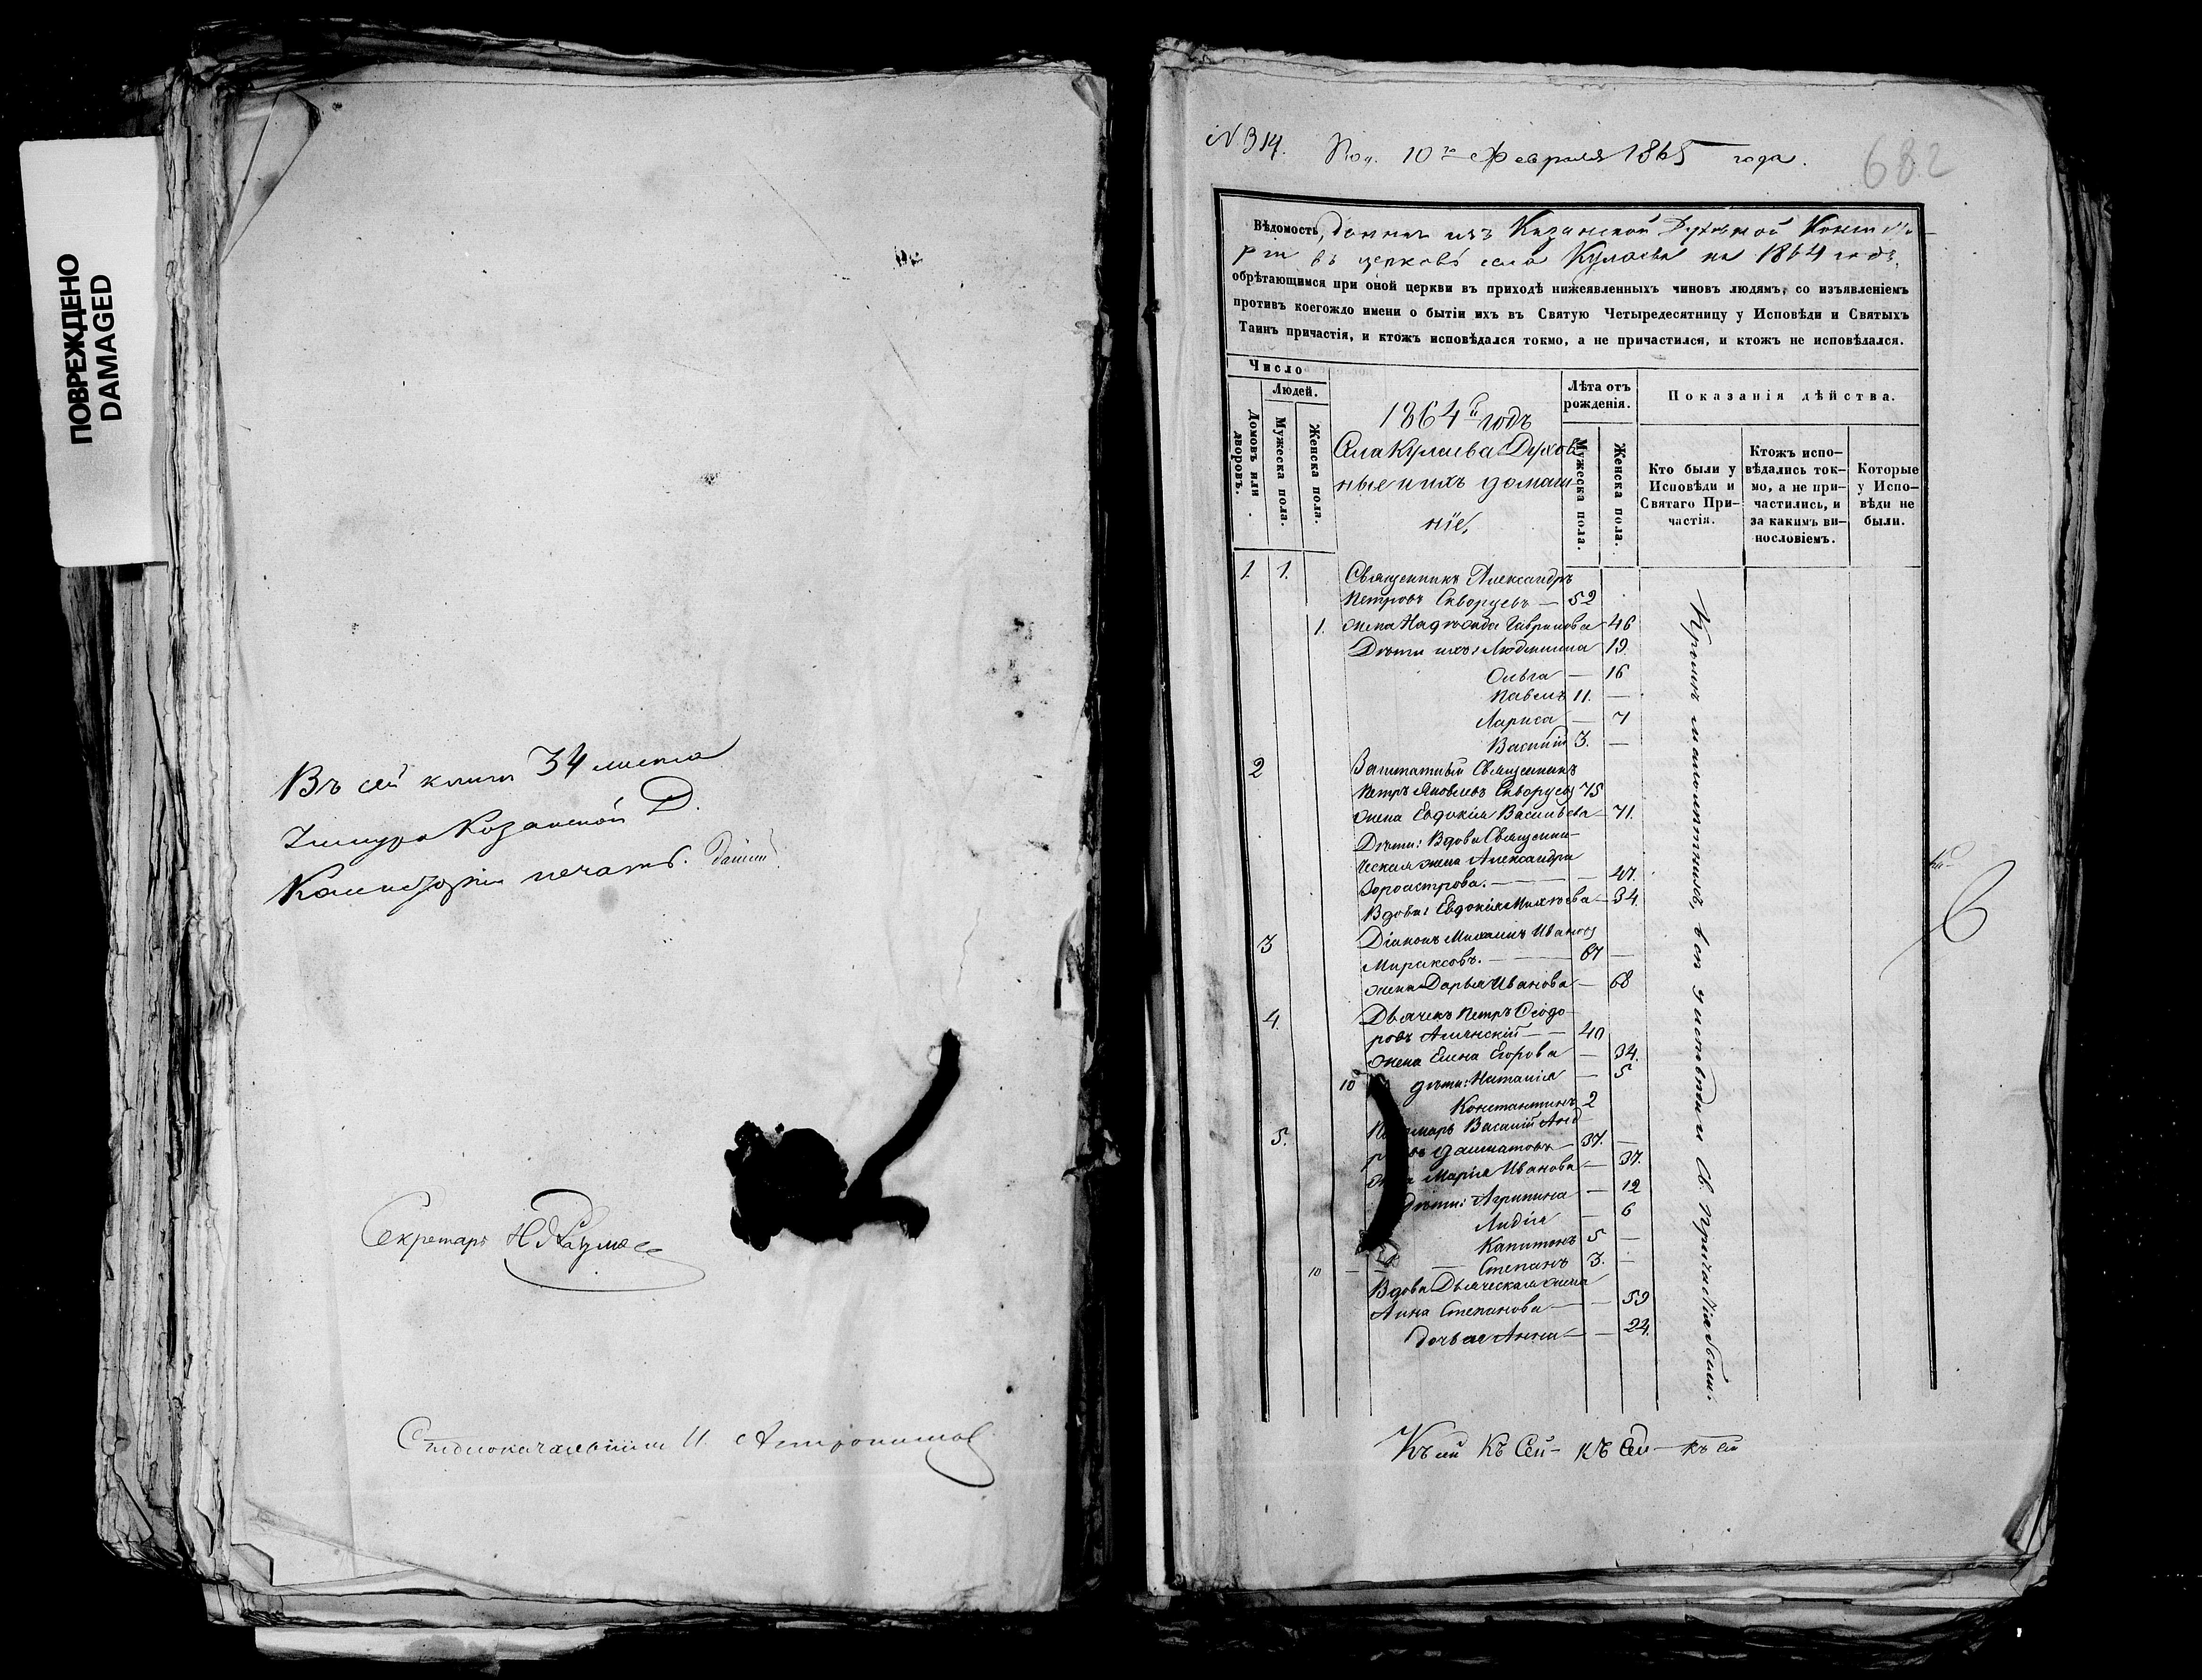 ПОВРЕЖДЕНО
DAMAGED
Въ сей книги 34 листа
Казанской Д.
печать.
Секретарь Н.
Столоначальникъ И.
N 314. Пол. 10го Февраля 1865 года.
682
Вѣдомость, данная изъ Казанской Духовной Консисто-
ріи въ церковь села Кулаева на 1864 годъ,
обрѣтающимся при оной церкви въ приходѣ нижеявленныхъ чиновъ людямъ, со изъявленіемъ
противъ коегождо имени о бытіи ихъ въ Святую Четыредесятницу у Исповѣди и Святыхъ
Таинъ причастія, и ктожъ исповѣдался токмо, а не причастился, и ктожъ не исповѣдался.
Число
Людей.
Домовъ или дворовъ.
Мужеска пола.
Женска пола.
1864й годъ
Села Кулаева Духов-
ные и ихъ домаш-
ніе,
Лѣта отъ
рожденія.
Мужеска пола.
Женска пола.
Показанія дѣйства.
Кто были у
Исповѣди и
Святаго При-
частія.
Ктожъ испо-
вѣдались ток-
мо, а не при-
частились, и
за какимъ ви-
нословіемъ.
Которые
у Испо-
вѣди не
были.
1. 1. Священникъ Александръ
Петровъ Скворцевъ — 52
1. жена Надѣжда Гаврилова — 46
Дѣти ихъ: Людмила 19.
Ольга — 16
Павелъ 11. —
Лариса — 7
Василій 3. —
2 Заштатный Священникъ
Петръ Яковлевъ Скворцевъ 75
жена Евдокія Васильева — 71.
Дѣти: Вдова Священни-
ческая жена Александра
Зороастрова. — — 47.
Вдова: Евдокія — 34.
3 Діаконъ Михаилъ Ивановъ
Мираксовъ. — 67 —
жена Дарья Иванова — 68
4. Дьячекъ Петръ Ѳеодо-
ровъ — 40
жена Елена Егорова — 34.
10 дѣти: Наталія — 5
Константинъ 2
5. Василій Анд
— 37. —
Марія Иванова — 37.
дѣти: Агрипина — 12
Лидія — 6
Капитонъ 5 —
10 — — — Степанъ 3. —
Вдова Дьяческая жена
Анна Степанова — — 59
дочь ея Анна — — 24.
Кромѣ малолѣтнихъ, всѣ у исповѣди и Св. причастія были.
Къ сей Къ Сей — къ Сей — къ сей